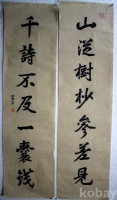 山從樹杪參差見
千詩不及一囊錢
kobay